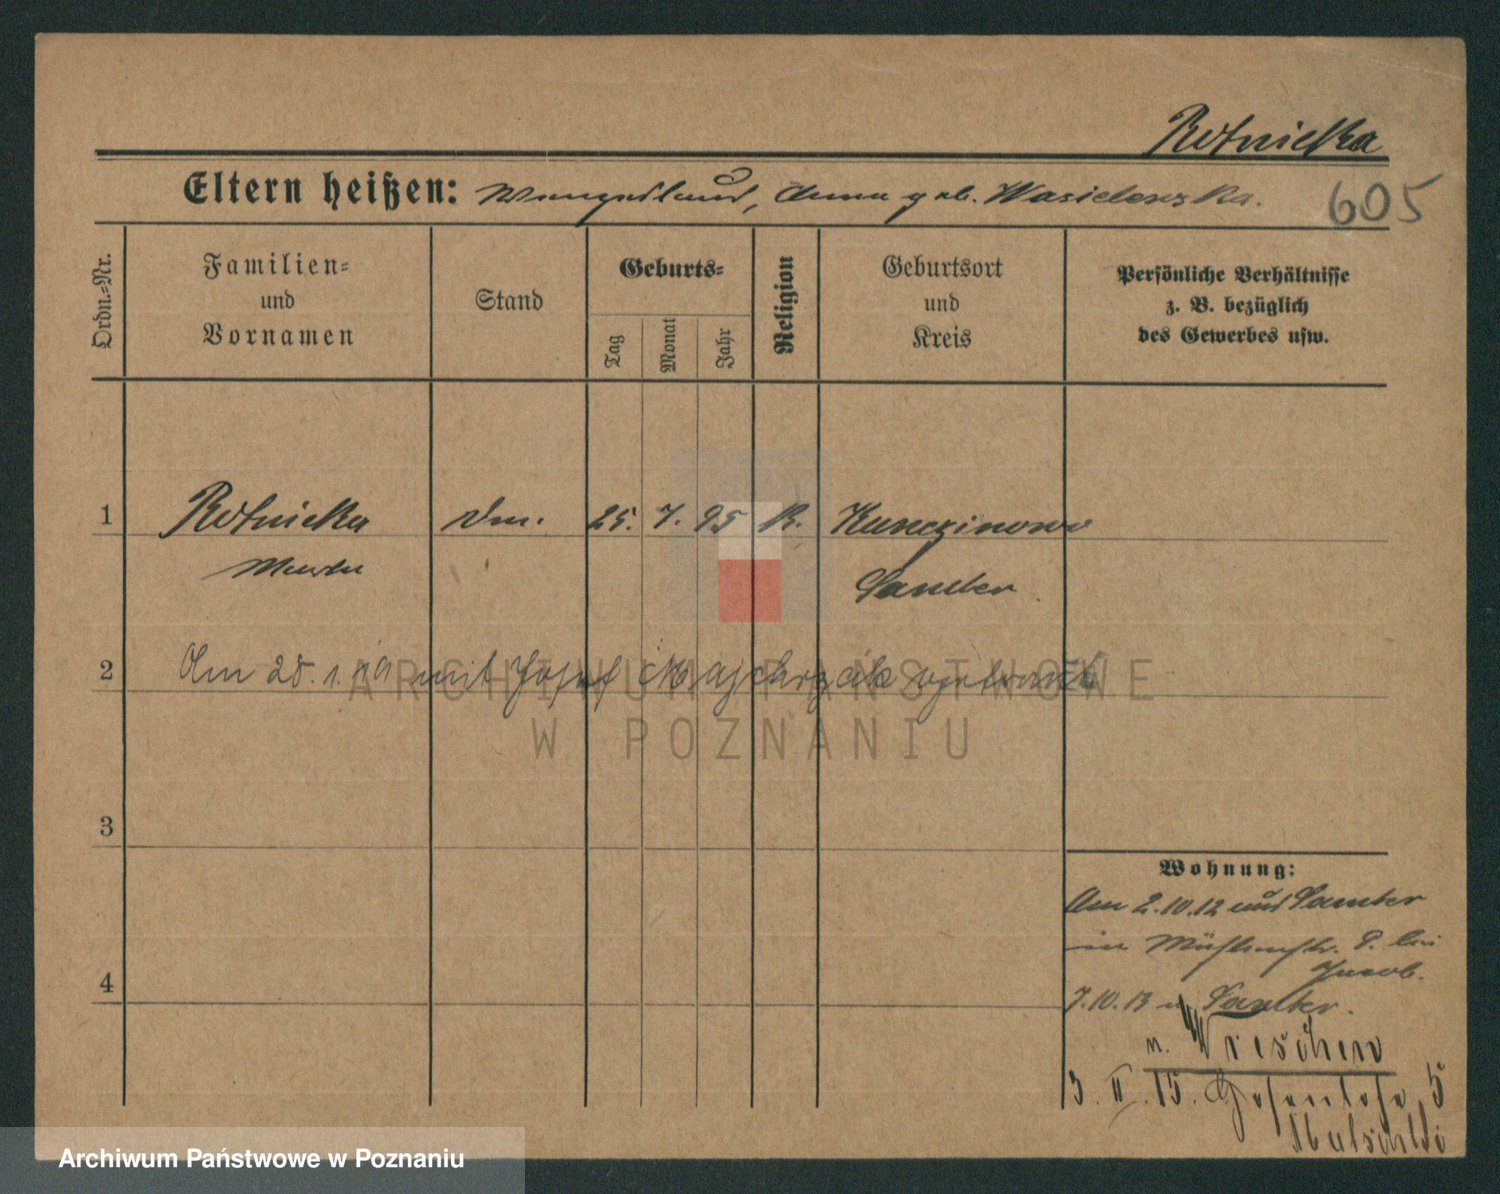 Rotnicka
Eltern heißen: Wenzeslaus, Anna geb. Wasielewska.
605
Ordn.-Nr.
Familien-
und
Vornamen
Stand
Geburts-
Tag
Monat
Jahr
Religion
Geburtsort
und
Kreis
Persönliche Verhältnisse
z. B. bezüglich
des Gewerbes usw.
1 Rotnicka 25. 7. 95 K.
Samter
2 Am 28. 1. 19 mit Josef Majchrzak getraut
ARCHIWUM PAŃSTWOWE
W POZNANIU
3
4
Wohnung:
Am 2.10.12 aus Samter
in Mühlenstr. 8. bei
Jacob.
7.10.13 n. Samter.
n. Wreschen
3. II. 15.
Archiwum Państwowe w Poznaniu